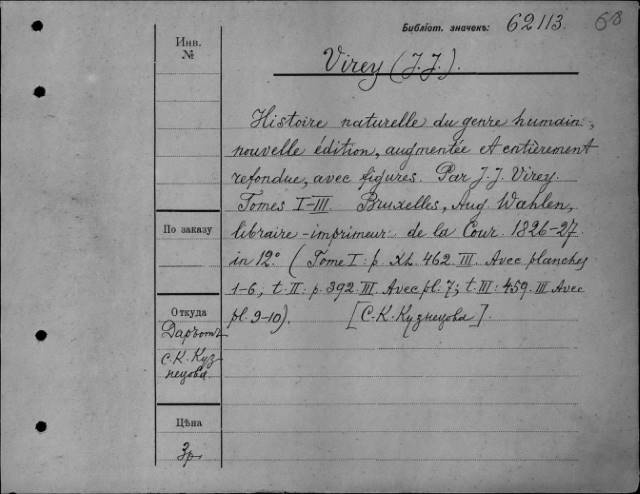 Библіот. значекъ: 62113. 68
Инв. №
Virey (J. J.).
Histoire naturelle du genre humain;
nouvelle édition, augmentée et entièrement
refondue, avec figures. Par J. J. Virey.
Tomes I–III. Bruxelles, Aug Wahlen,
По заказу
libraire-imprimeur de la Cour. 1826–27.
in 12° (Tome I: p. XL. 462. III. Avec planches
1–6; t. II: p. 392. III. Avec pl. 7; t. III: 459. III Avec
pl. 9–10). [С. К. Кузнецова].
Откуда
Даръ отъ
С. К. Куз-
нецова.
Цѣна
3р.